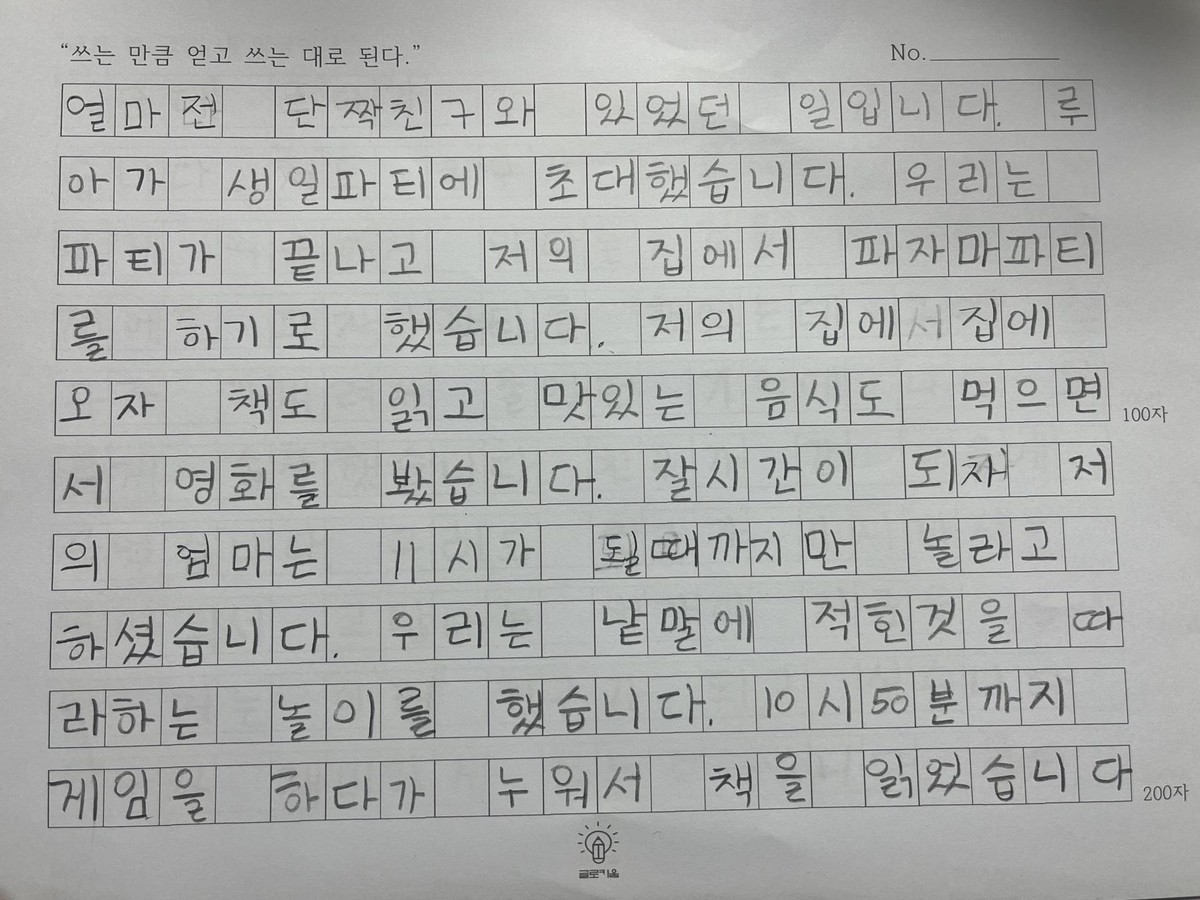 “쓰는 만큼 얻고 쓰는 대로 된다.” No.
열마전 단짝친구와 있었던 일입니다. 루
아가 생일파티에 초대했습니다. 우리는
파티가 끝나고 저의 집에서 파자마파티
를 하기로 했습니다. 저의 집에서 집에
오자 책도 읽고 맛있는 음식도 먹으면 100자
서 영화를 봤습니다. 잘시간이 되자 저
의 엄마는 11시가 될때까지만 놀라고
하셨습니다. 우리는 낱말에 적힌것을 따
라하는 놀이를 했습니다. 10시50분까지
게임을 하다가 누워서 책을 읽었습니다 200자
글로키움